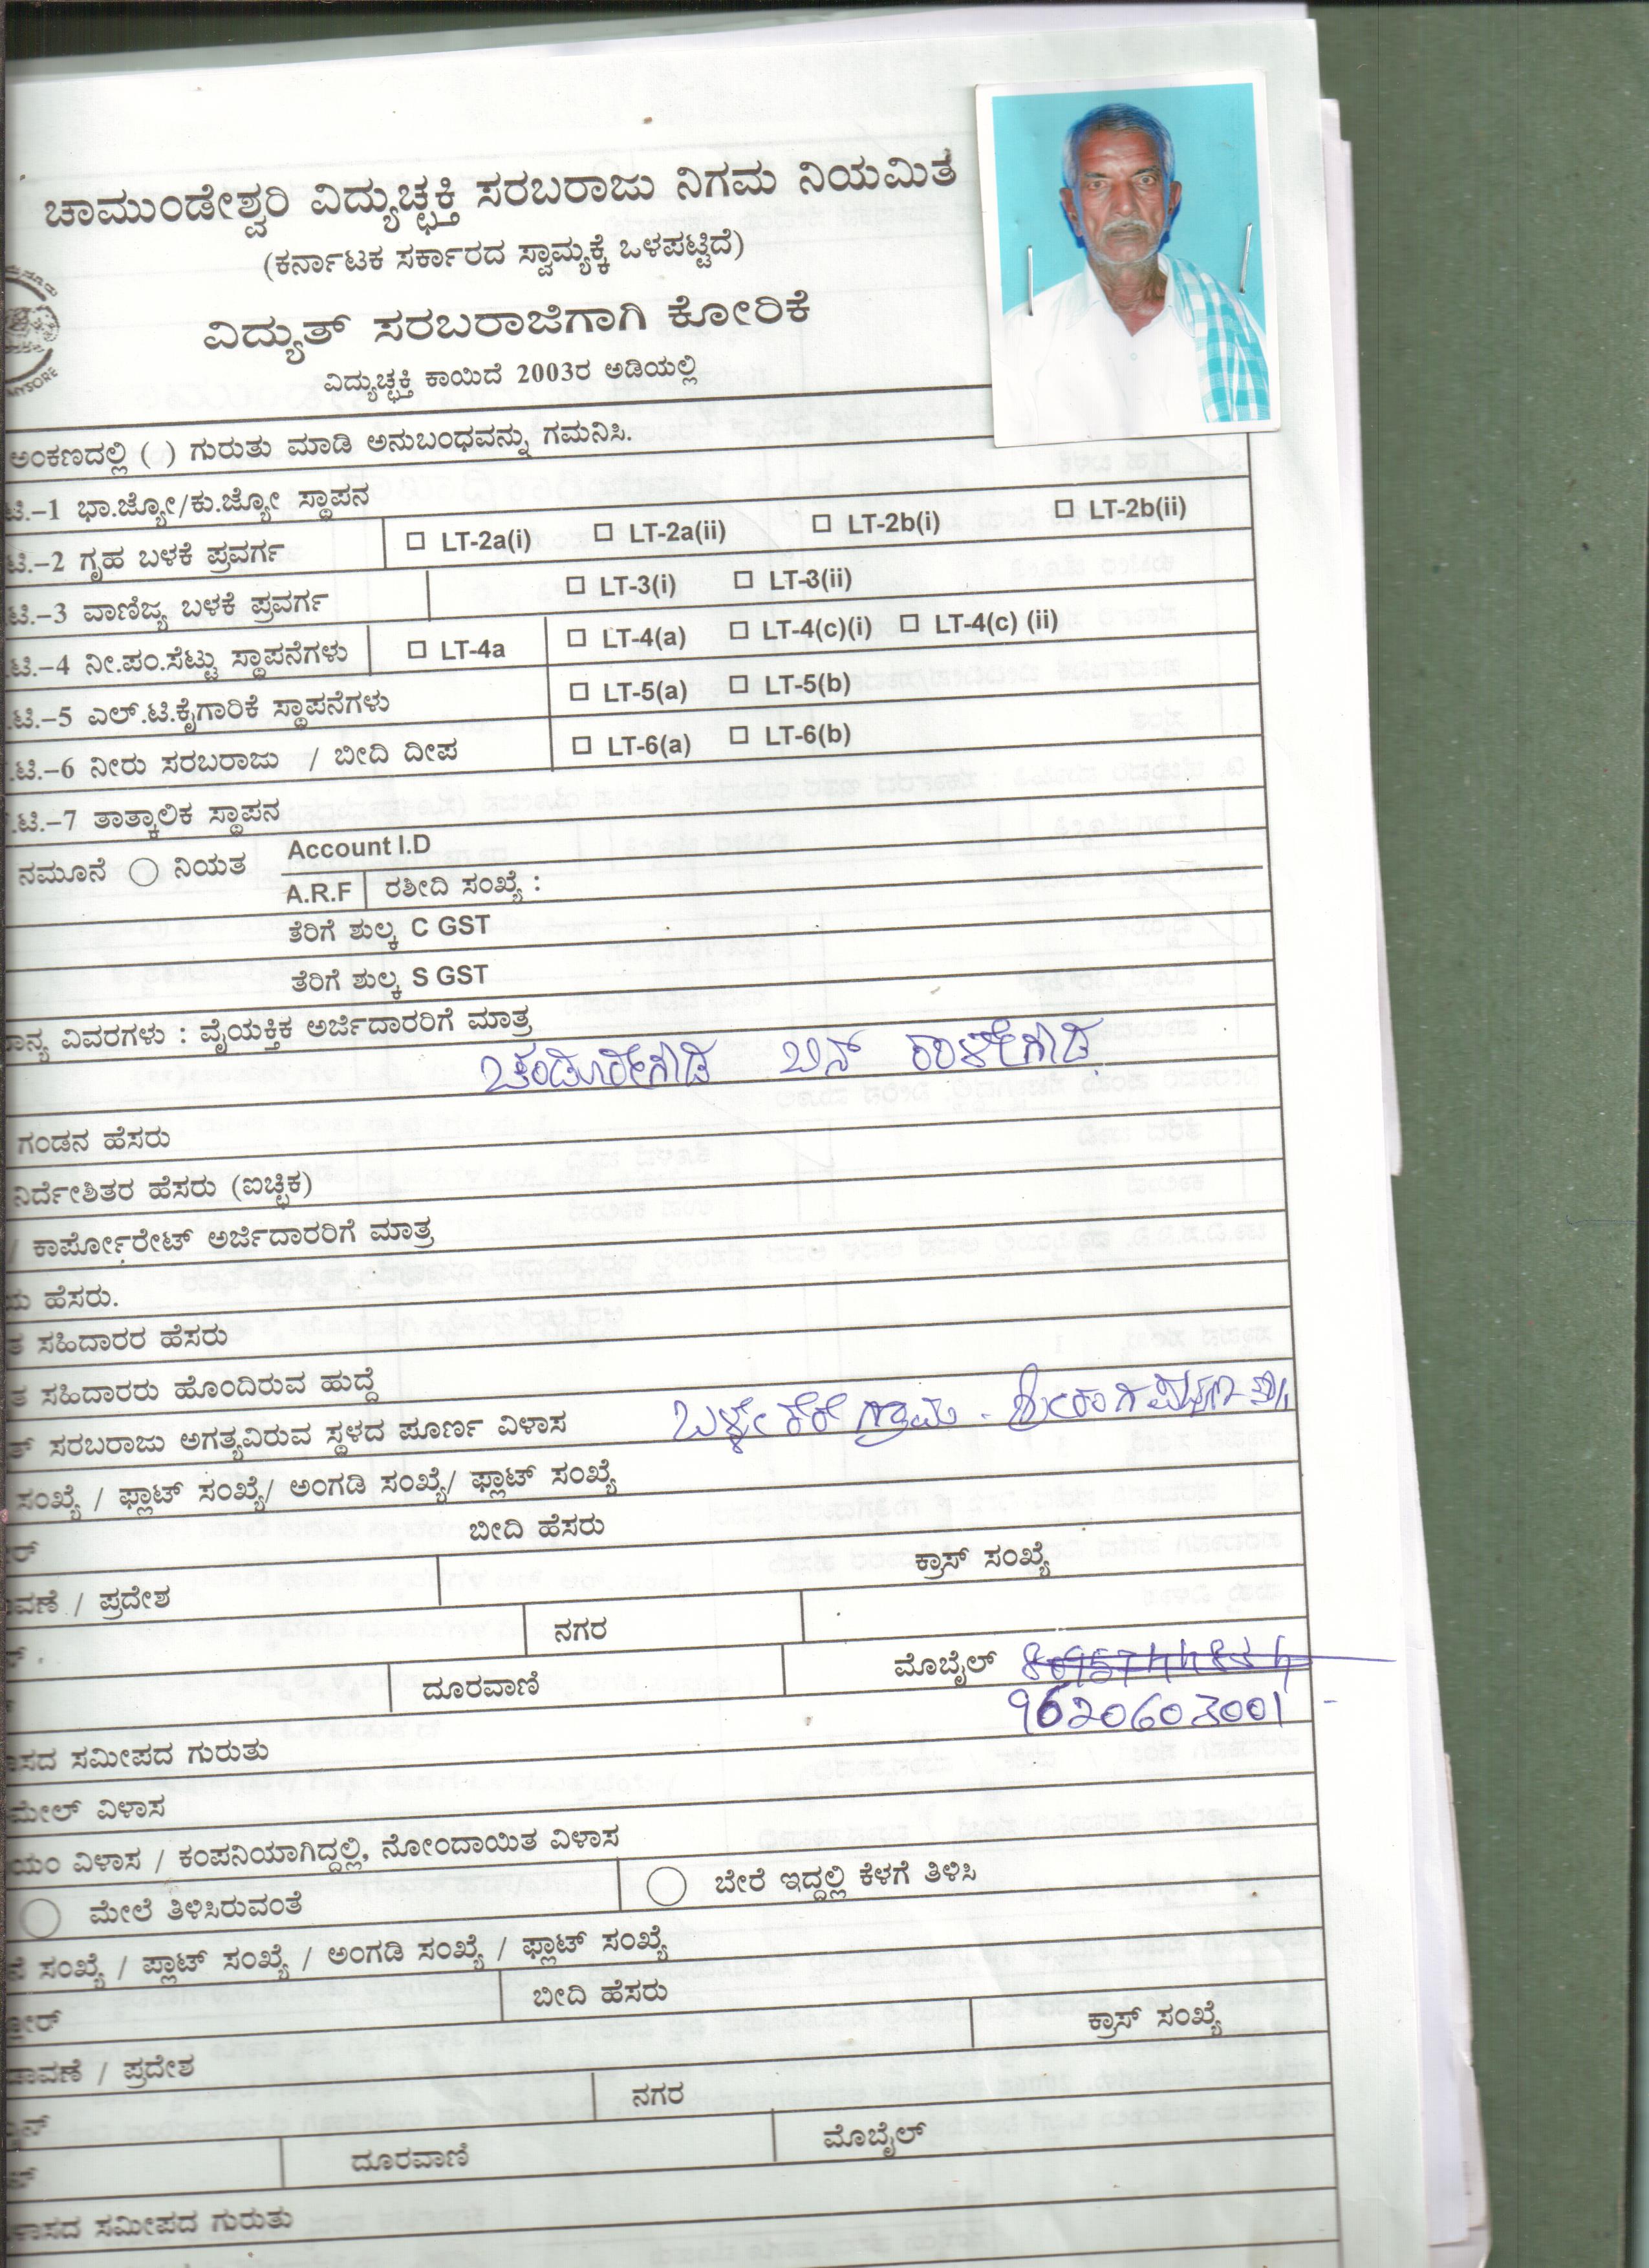 ಚಾಮುಂಡೇಶ್ವರಿ ವಿದ್ಯುಚ್ಛಕ್ತಿ ಸರಬರಾಜು ನಿಗಮ ನಿಯಮಿತ
(ಕರ್ನಾಟಕ ಸರ್ಕಾರದ ಸ್ವಾಮ್ಯಕ್ಕೆ ಒಳಪಟ್ಟಿದೆ)
ವಿದ್ಯುತ್ ಸರಬರಾಜಿಗಾಗಿ ಕೋರಿಕೆ
ವಿದ್ಯುಚ್ಛಕ್ತಿ ಕಾಯಿದೆ 2003ರ ಅಡಿಯಲ್ಲಿ
ಅಂಕಣದಲ್ಲಿ ( ) ಗುರುತು ಮಾಡಿ ಅನುಬಂಧವನ್ನು ಗಮನಿಸಿ.
ಟಿ.–1 ಭಾ.ಜ್ಯೋ/ಕು.ಜ್ಯೋ ಸ್ಥಾಪನ
ಟಿ.–2 ಗೃಹ ಬಳಕೆ ಪ್ರವರ್ಗ LT-2a(i) LT-2a(ii) LT-2b(i) LT-2b(ii)
ಟಿ.–3 ವಾಣಿಜ್ಯ ಬಳಕೆ ಪ್ರವರ್ಗ LT-3(i) LT-3(ii)
ಟಿ.–4 ನೀ.ಪಂ.ಸೆಟ್ಟು ಸ್ಥಾಪನೆಗಳು LT-4a LT-4(a) LT-4(c)(i) LT-4(c) (ii)
.ಟಿ.–5 ಎಲ್.ಟಿ.ಕೈಗಾರಿಕೆ ಸ್ಥಾಪನೆಗಳು LT-5(a) LT-5(b)
.ಟಿ.–6 ನೀರು ಸರಬರಾಜು / ಬೀದಿ ದೀಪ LT-6(a) LT-6(b)
.ಟಿ.–7 ತಾತ್ಕಾಲಿಕ ಸ್ಥಾಪನ
ನಮೂನೆ ನಿಯತ Account I.D
A.R.F ರಶೀದಿ ಸಂಖ್ಯೆ :
ತೆರಿಗೆ ಶುಲ್ಕ C GST
ತೆರಿಗೆ ಶುಲ್ಕ S GST
ವಿವರಗಳು : ವೈಯಕ್ತಿಕ ಅರ್ಜಿದಾರರಿಗೆ ಮಾತ್ರ
ಬಿನ್
ಗಂಡನ ಹೆಸರು
ನಿರ್ದೇಶಿತರ ಹೆಸರು (ಐಚ್ಛಿಕ)
/ ಕಾರ್ಪೋರೇಟ್ ಅರ್ಜಿದಾರರಿಗೆ ಮಾತ್ರ
ಹೆಸರು.
ತ ಸಹಿದಾರರ ಹೆಸರು
ತ ಸಹಿದಾರರು ಹೊಂದಿರುವ ಹುದ್ದೆ
ಸರಬರಾಜು ಅಗತ್ಯವಿರುವ ಸ್ಥಳದ ಪೂರ್ಣ ವಿಳಾಸ ಗ್ರಾಮ
ಸಂಖ್ಯೆ / ಫ್ಲಾಟ್ ಸಂಖ್ಯೆ/ ಅಂಗಡಿ ಸಂಖ್ಯೆ/ ಫ್ಲಾಟ್ ಸಂಖ್ಯೆ
ಬೀದಿ ಹೆಸರು
ಕ್ರಾಸ್ ಸಂಖ್ಯೆ
/ ಪ್ರದೇಶ
ನಗರ
ದೂರವಾಣಿ ಮೊಬೈಲ್
9620603001
ಸಮೀಪದ ಗುರುತು
ಮೇಲ್ ವಿಳಾಸ
ವಿಳಾಸ / ಕಂಪನಿಯಾಗಿದ್ದಲ್ಲಿ, ನೋಂದಾಯಿತ ವಿಳಾಸ
ಮೇಲೆ ತಿಳಿಸಿರುವಂತೆ ಬೇರೆ ಇದ್ದಲ್ಲಿ ಕೆಳಗೆ ತಿಳಿಸಿ
ಸಂಖ್ಯೆ / ಪ್ಲಾಟ್ ಸಂಖ್ಯೆ / ಅಂಗಡಿ ಸಂಖ್ಯೆ / ಫ್ಲಾಟ್ ಸಂಖ್ಯೆ
ಬೀದಿ ಹೆಸರು
ಕ್ರಾಸ್ ಸಂಖ್ಯೆ
/ ಪ್ರದೇಶ
ನಗರ
ದೂರವಾಣಿ ಮೊಬೈಲ್
ಸಮೀಪದ ಗುರುತು